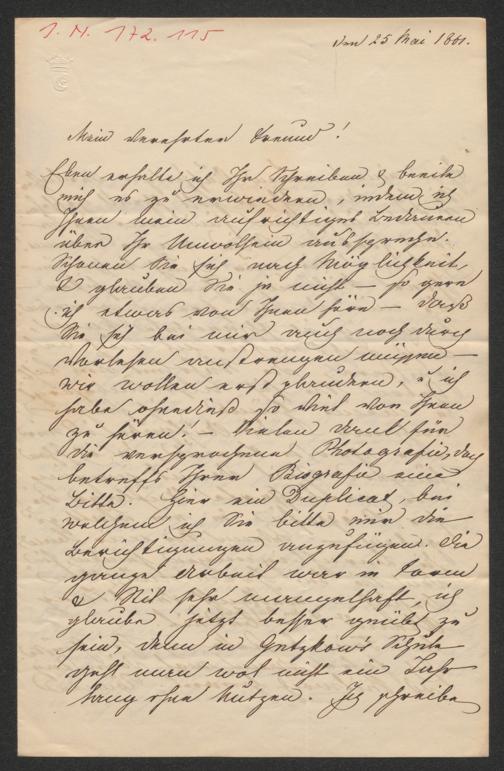 J. N. 172.115
den 25 Mai 1861.
Mein verehrter Freund!
Eben erhalte ich Ihr Schreiben & beeile
mich es zu erwiedern, indem ich
Ihnen mein aufrichtiges Bedauern
über Ihr Unwohlsein ausspreche.
Schonen Sie sich nach Möglichkeit,
& glauben Sie ja nicht – so gern
ich etwas von Ihnen höre – daß
Sie sich bei mir auch noch durch
Vorlesen anstrengen müssen –
wir wollen erst plaudern, u ich
habe ohnedieß so viel von Ihnen
zu hören! – Vielen Dank für
die versprochene Photografie, doch
betreffs Ihrer Biografie eine
Bitte. Hier ein Duplicat, bei
welchem ich Sie bitte nur die
Berichtigungen anzufügen. Die
ganze Arbeit war in Form
& Stil sehr mangelhaft, ich
glaube jetzt besser geübt zu
sein, denn in Gutzkow's Schule
geht man wol nicht ein Jahr
lang ohne Nutzen. Ich schreibe